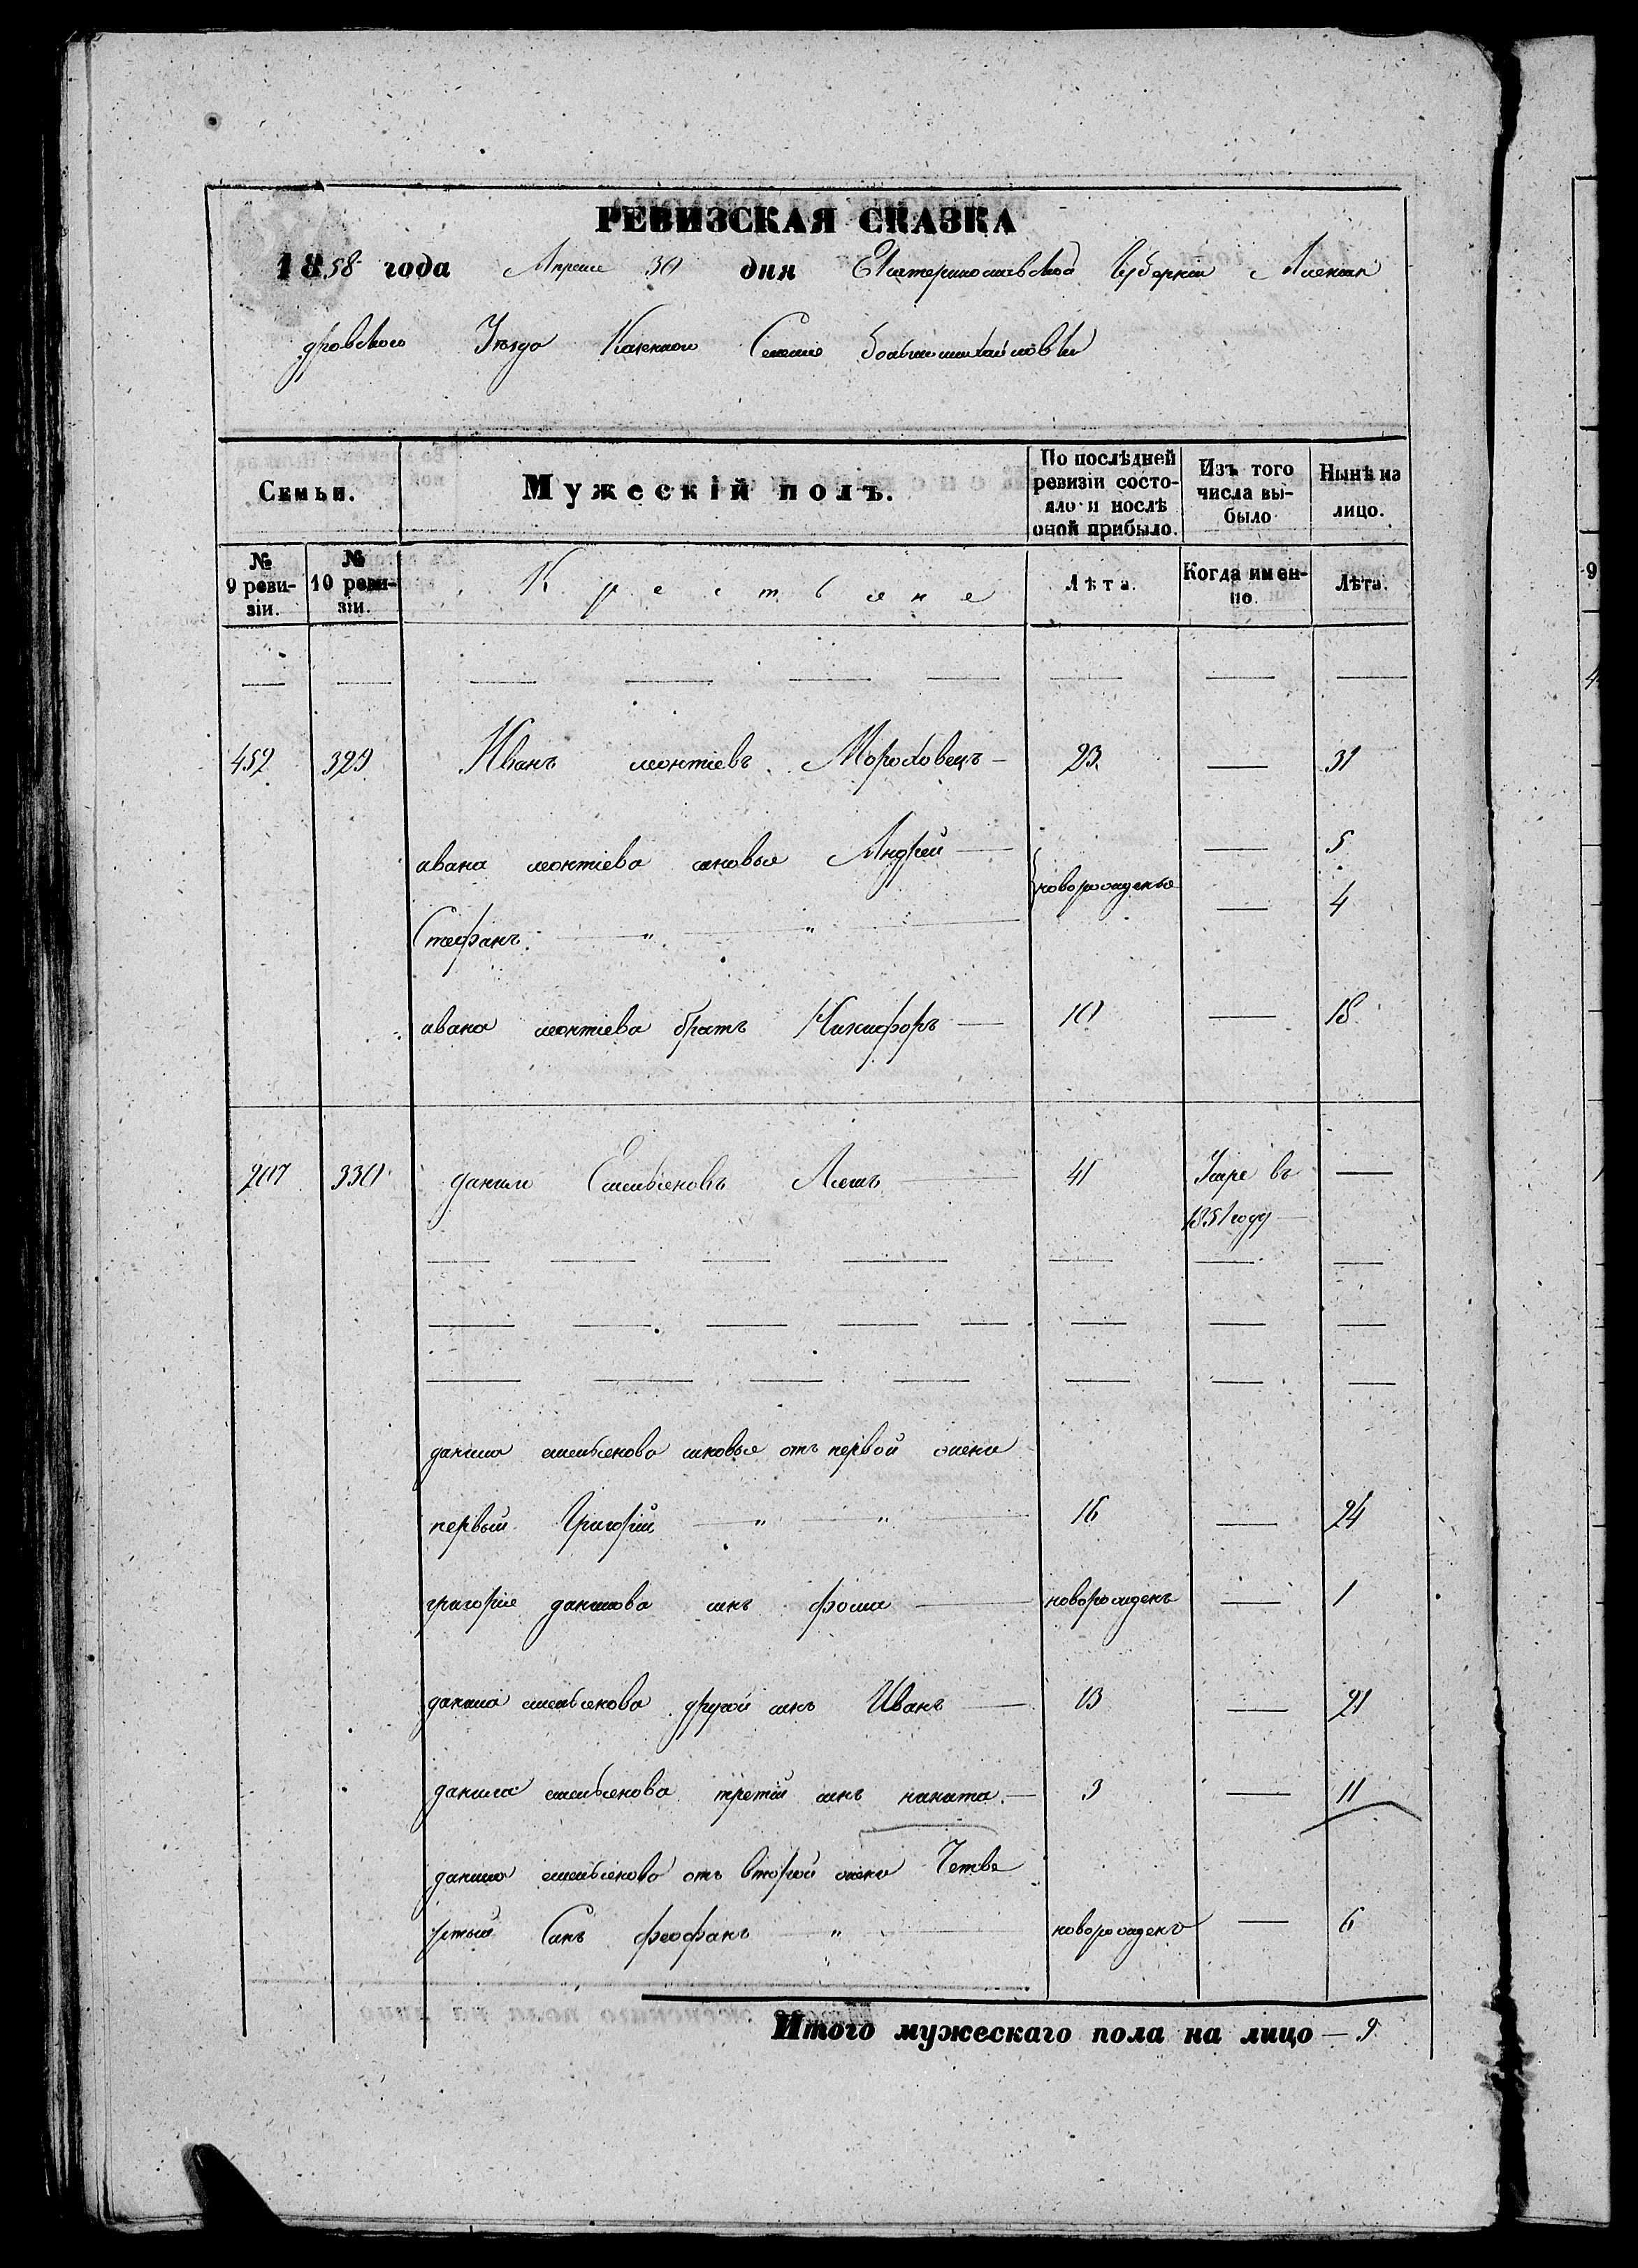 РЕВИЗСКАЯ СКАЗКА
1858 года Апреля 30 дня Екатеринославской Губерніи Алексан
дровского Уезда Казенного Селенія Большемихайловки
Семьи.
Мужескій полъ.
По послѣдней ревизіи состояло и послѣ оной прибыло.
Изъ того числа выбыло
Нынѣ на лицо.
№ 9 ревизіи.
№ 10 ревизіи.
Крестьяне
Лѣта.
Когда именно.
Лѣта.
452 329 Иванъ леонтіевъ Мороховецъ 23 31
ивана леонтіева сыновья Андрей новорожденые 5
Стефанъ " " 4
ивана леонтіева братъ Никифоръ 10 18
207 330 данило Емельяновъ 41 Умре въ
1851 году
данила емельянова сыновья отъ первой жены
первый Григорій " " 16 24
григорія данилова сынъ фома новорожденъ 1
данила емельянова другой сынъ Иванъ 13 21
данила емельянова третій сынъ никита 3 11
данила емельянова отъ второй жены Четве
ртый Сынъ феофанъ " новорожденъ 6
Итого мужескаго пола на лицо — 9